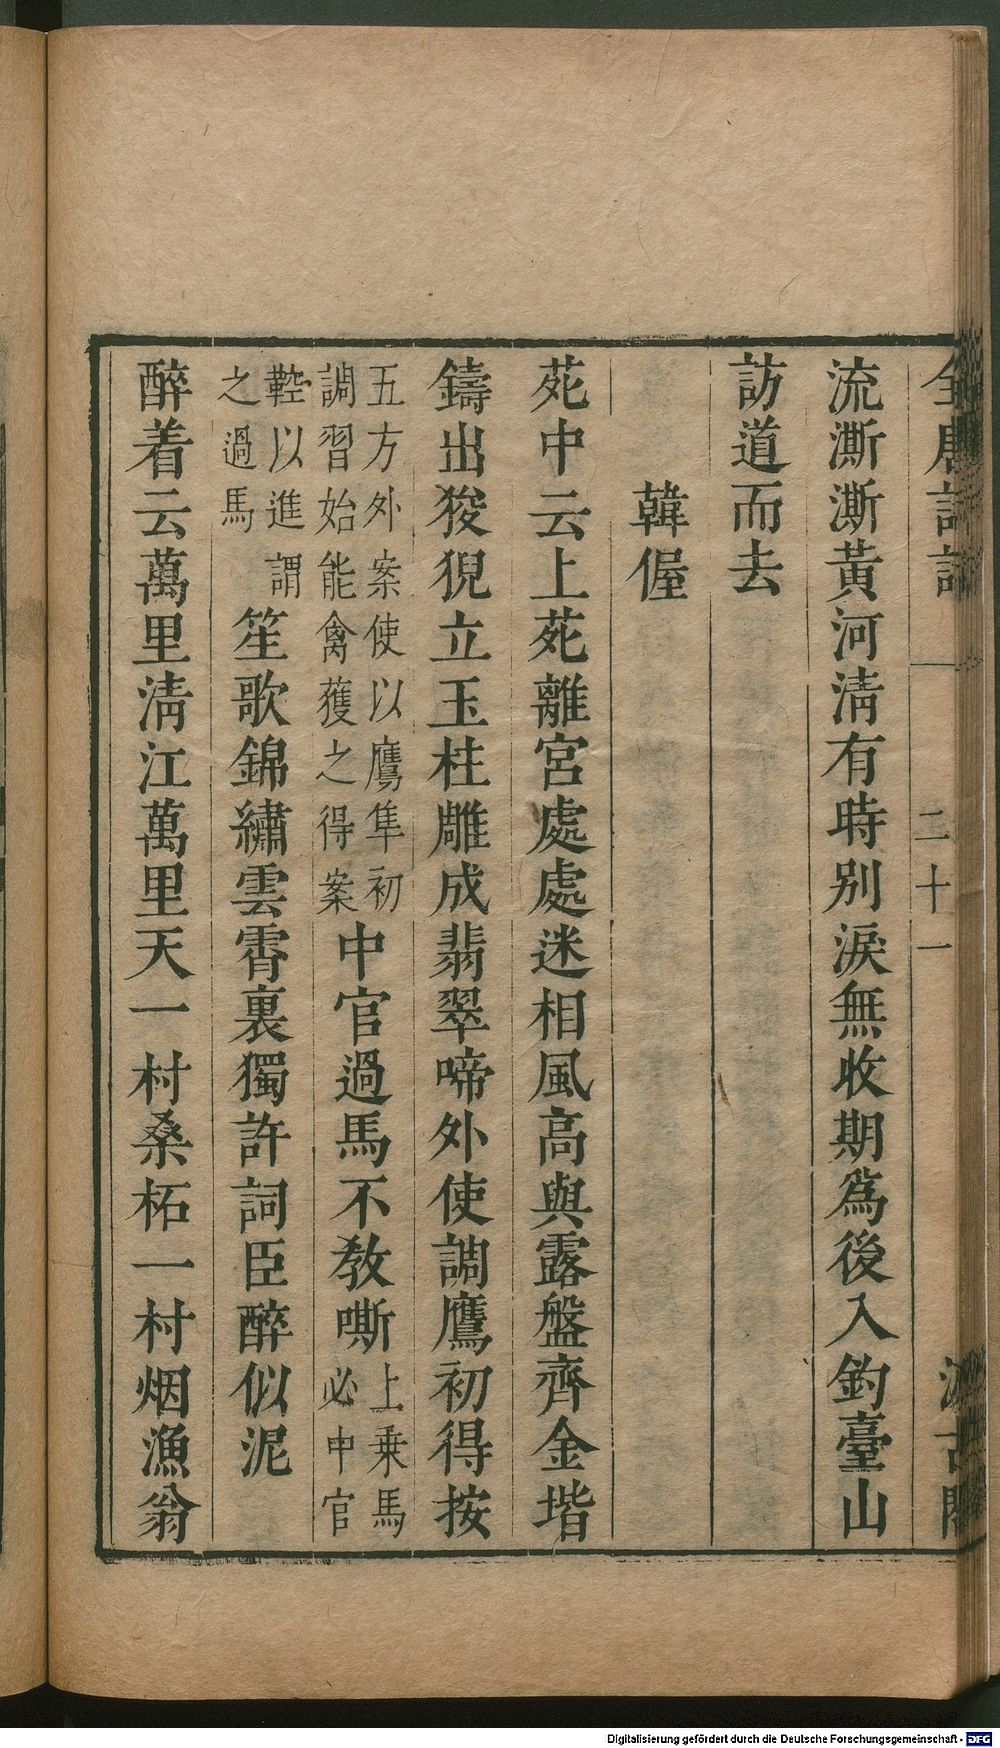 全唐詩話
二十一
汲古閣
流澌澌黃河淸有時別淚無收期爲後入釣臺山
訪道而去
韓偓
苑中云上苑離宮處處迷相風高與露盤齊金堦
鑄出狻猊立玉柱雕成翡翠啼外使調鷹初得按
五方外案使以鷹隼初
調習始能禽獲之得案
中官過馬不教嘶
上乗馬
必中官
鞚以進謂
之過馬
笙歌錦繡雲霄裏獨許詞臣醉似泥
醉着云萬里淸江萬里天一村桑柘一村烟漁翁
Digitalisierung gefördert durch die Deutsche Forschungsgemeinschaft - DFG